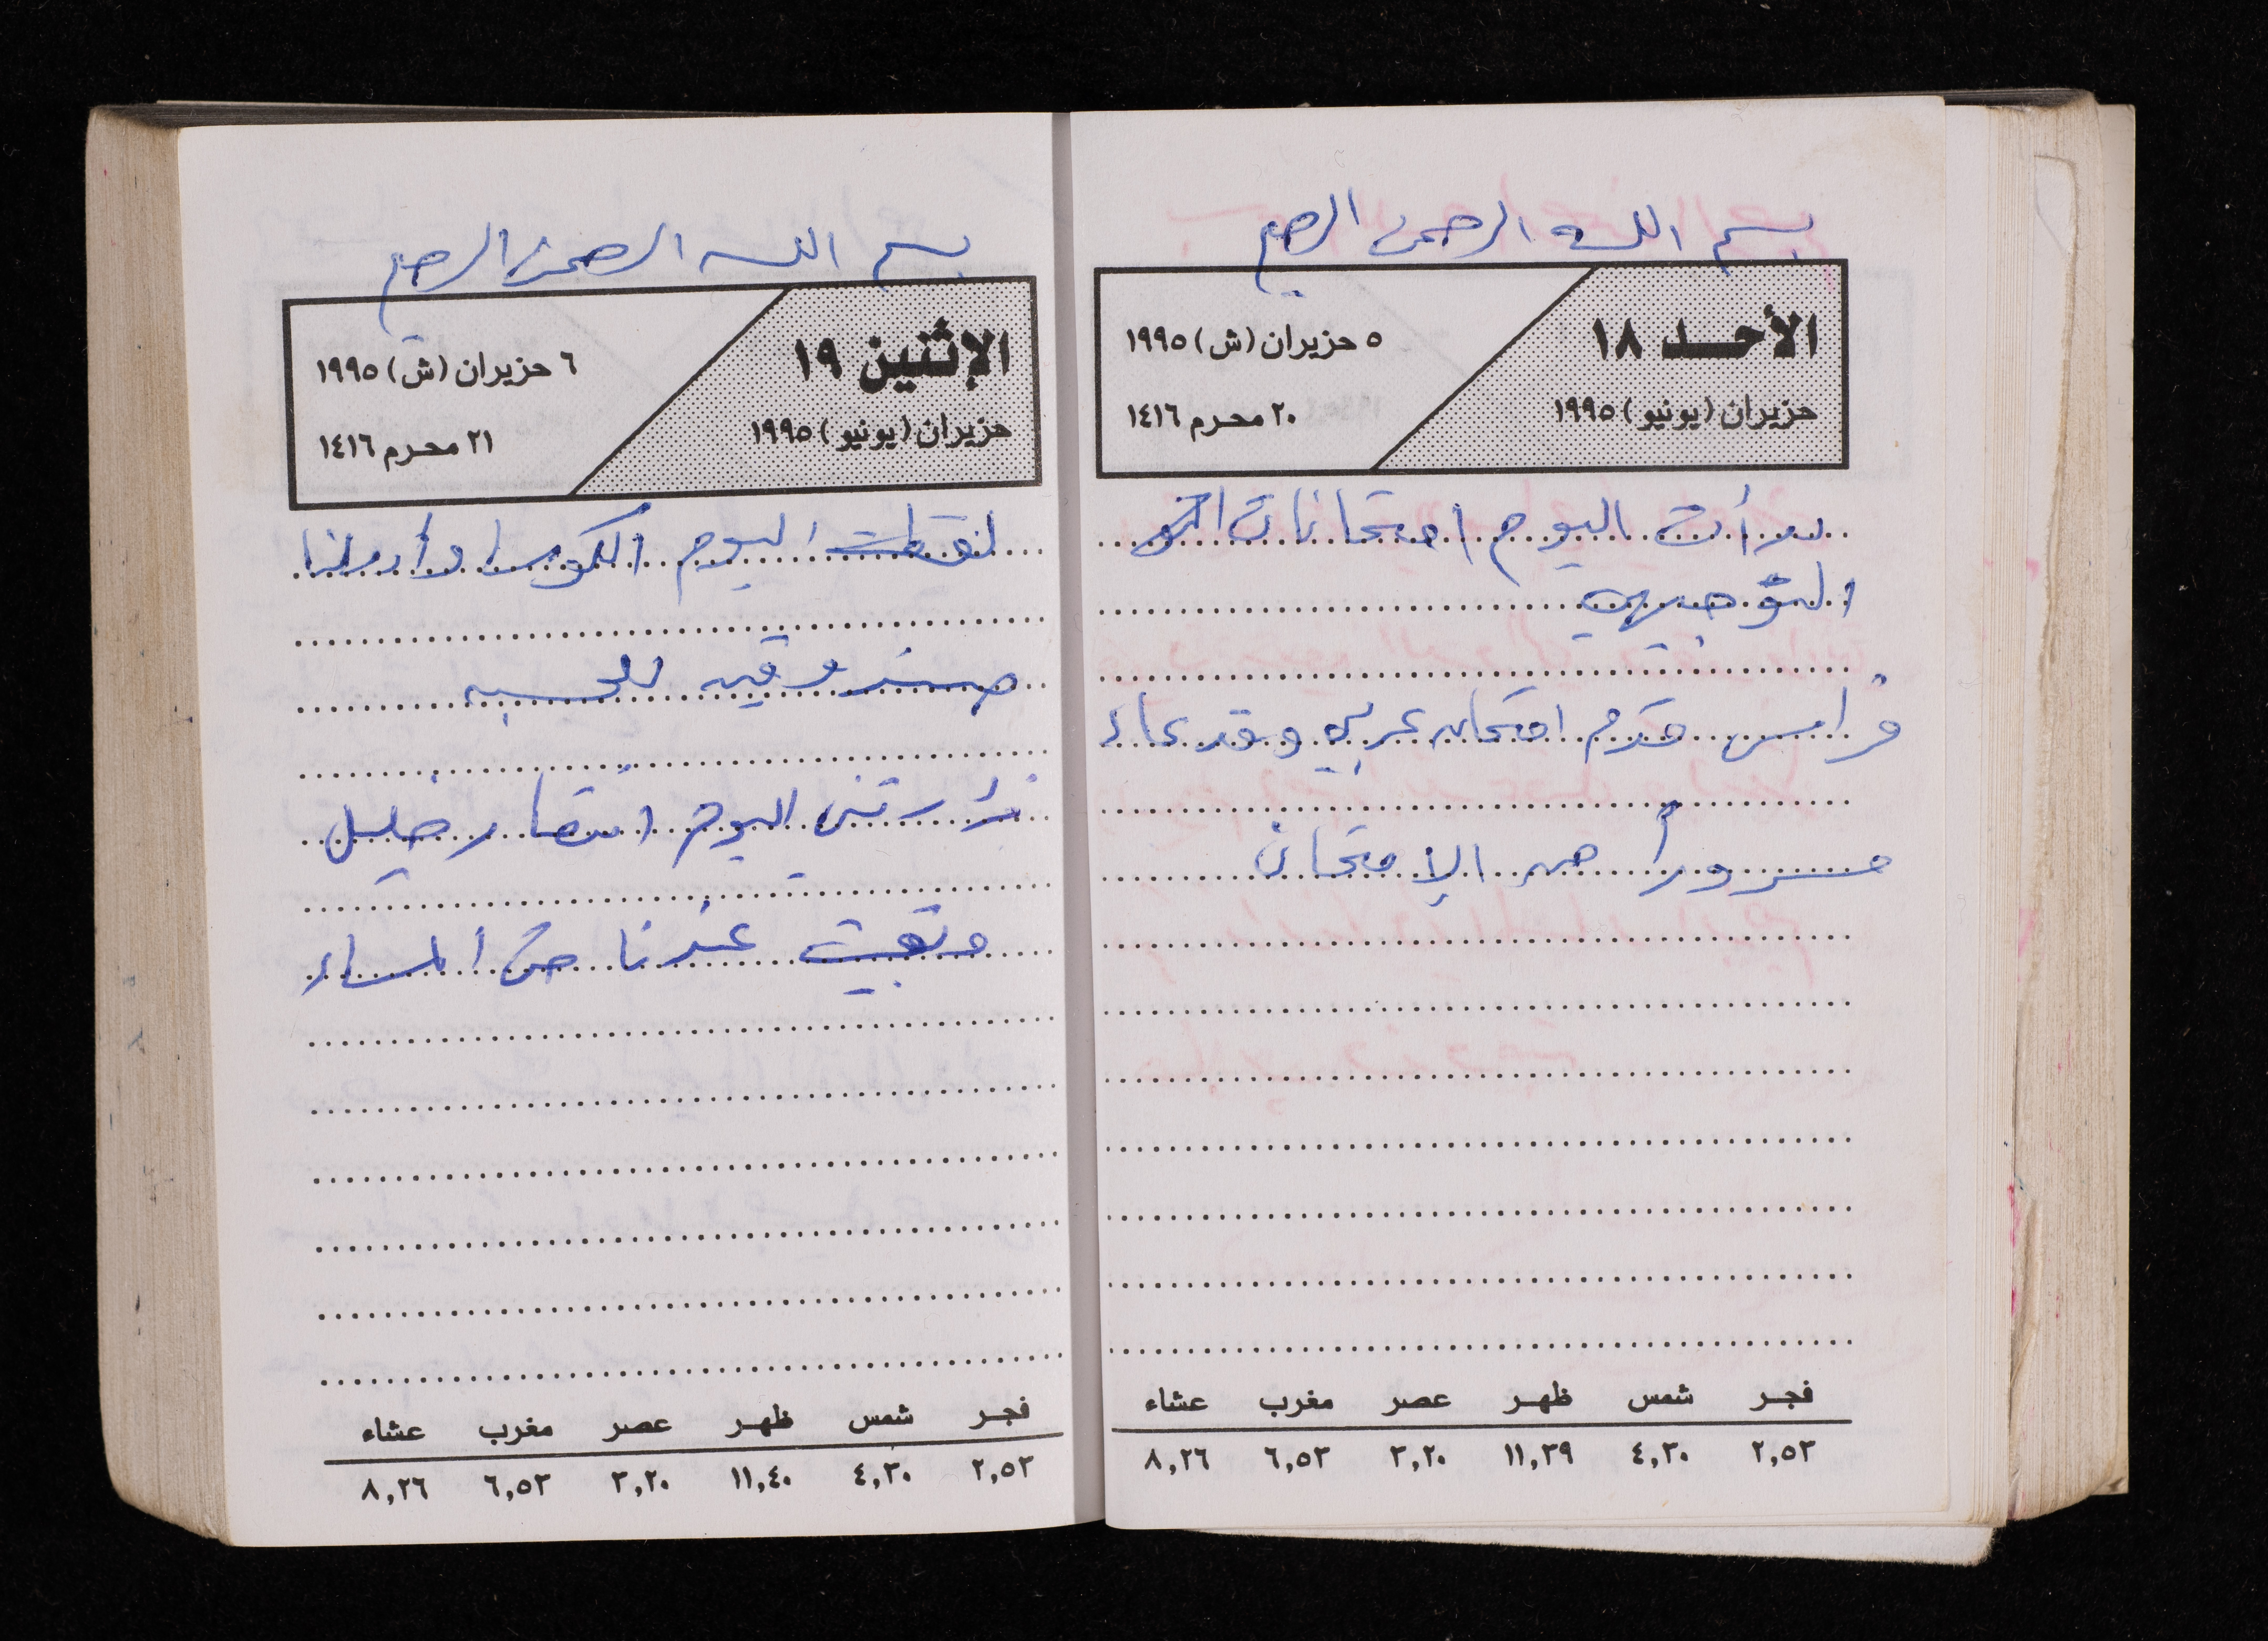 بسم الله الرحمن الرحيم
الأحد ١٨
حزيران (يونيو) ١٩٩٥
٥ حزيران (ش) ١٩٩٥
٢٠ محرم ١٤١٦
بدأت اليوم امتحانات التو
التوجيهي
فراس قدم امتحان عربي وقد جاء
مسروراً من الامتحان
فجر شمس ظهر عصر مغرب عشاء
٢,٥٣ ٤,٣٠ ١١,٣٩ ٣,٢٠ ٦,٥٣ ٨,٢٦
بسم الله الرحمن الرحيم
الإثنين ١٩
حزيران (يونيو) ١٩٩٥
٦ حزيران (ش) ١٩٩٥
٢١ محرم ١٤١٦
اليوم الكوسا
للحسبه
زارتني اليوم انتصار خليل
وبقيت عندنا المساء
فجر شمس ظهر عصر مغرب عشاء
٢,٥٣ ٤,٣٠ ١١,٤٠ ٣,٢٠ ٦,٥٣ ٨,٢٦